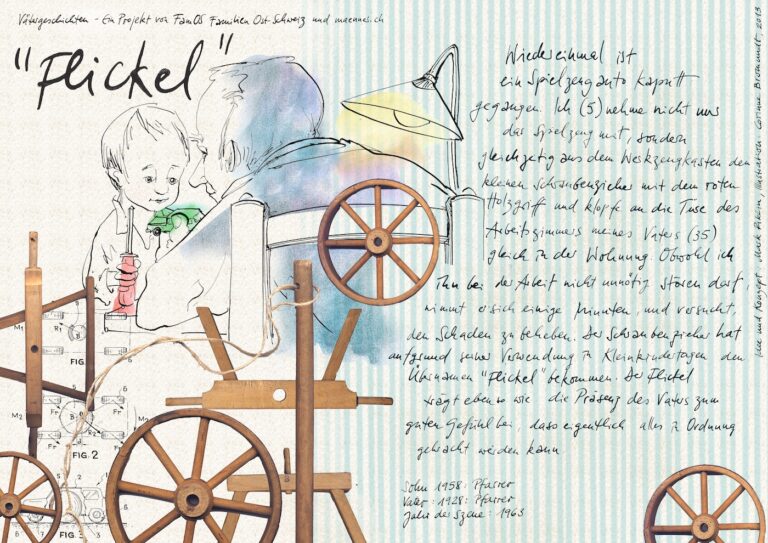 Vätergeschichten - Ein Projekt von FamOS Familien Ost-Schweiz und maenner.ch
"Flickel"
Wiedereinmal ist
ein Spielzeugauto kaputt
gegangen. Ich (5) nehme nicht nur
das Spielzeug mit, sondern
gleichzeitig aus dem Werkzeugkasten den
kleinen Schraubenzieher mit dem roten
Holzgriff und klopfe an die Türe des
Arbeitszimmers meines Vaters (35)
gleich in der Wohnung. Obwohl ich
ihn bei der Arbeit nicht unnötig stören darf,
nimmt er sich einige Minuten, und versucht,
den Schaden zu beheben. Der Schraubenzieher hat
aufgrund seiner Verwendung in Kleinkindertagen den
Übernamen "Flickel" bekommen. Der Flickel
trägt ebenso wie die Präsenz des Vaters zum
guten Gefühl bei, dass eigentlich alles in Ordnung
gebracht werden kann.
Sohn 1958: Pfarrer
Vater: 1928: Pfarrer
Jahr der Szene: 1963
Idee und Konzept: Mark Riklin, Illustration: Corinne Bromundt, 2013
FIG. 1
M2
Fr
M1
B
Fr
FIG. 2
FIG. 3